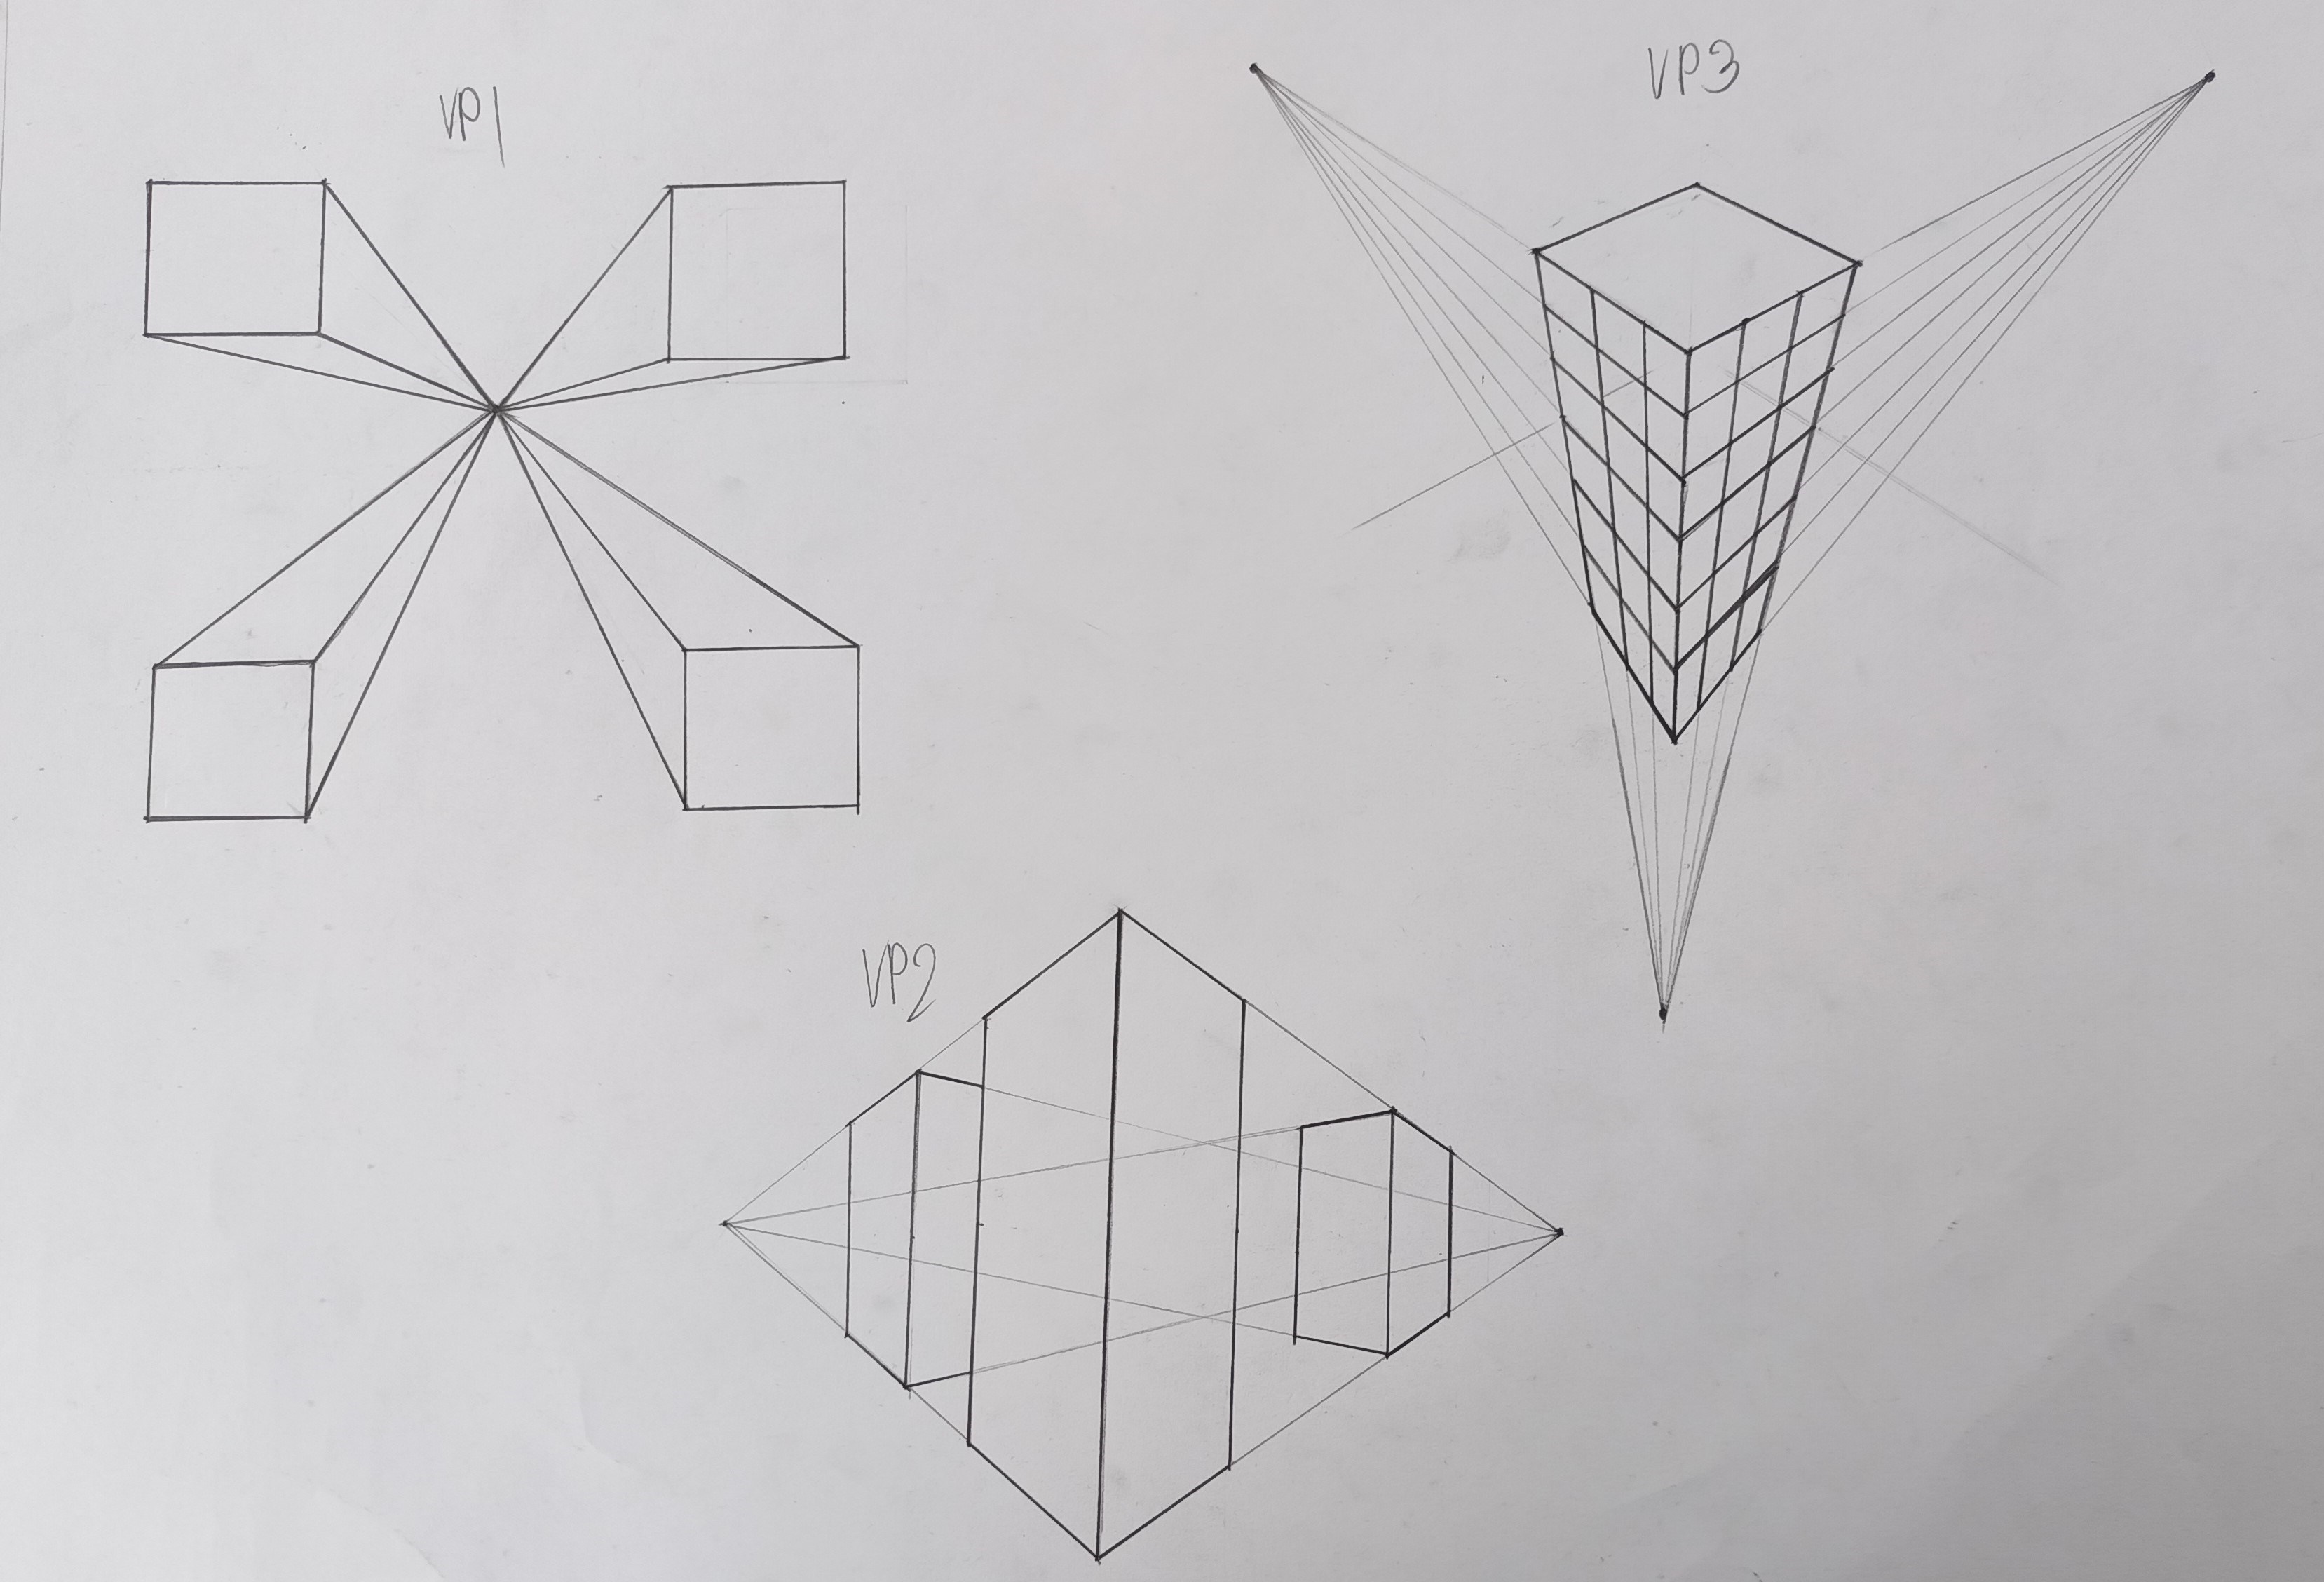 VP1
VP3
VP2